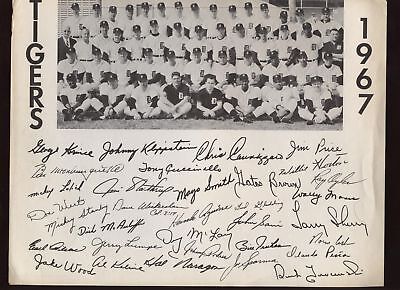 TIGERS
1967
George Korince Johnny Klippstein Chris Cannizzaro Jim Price
Tony Cuccinello Willie Horton
Mickey Lolich Jim Northrup Mayo Smith Gates Brown Wally Moses
Don Wert Mickey Stanley Dave Wickersham Larry Sherry
Dick McAuliffe Hank Aguirre John Sain Norm Cash
Earl Wilson Jerry Lumpe Denny McLain Bill Freehan Orlando Peña
Jake Wood Al Kaline Hal Naragon Joe Sparma